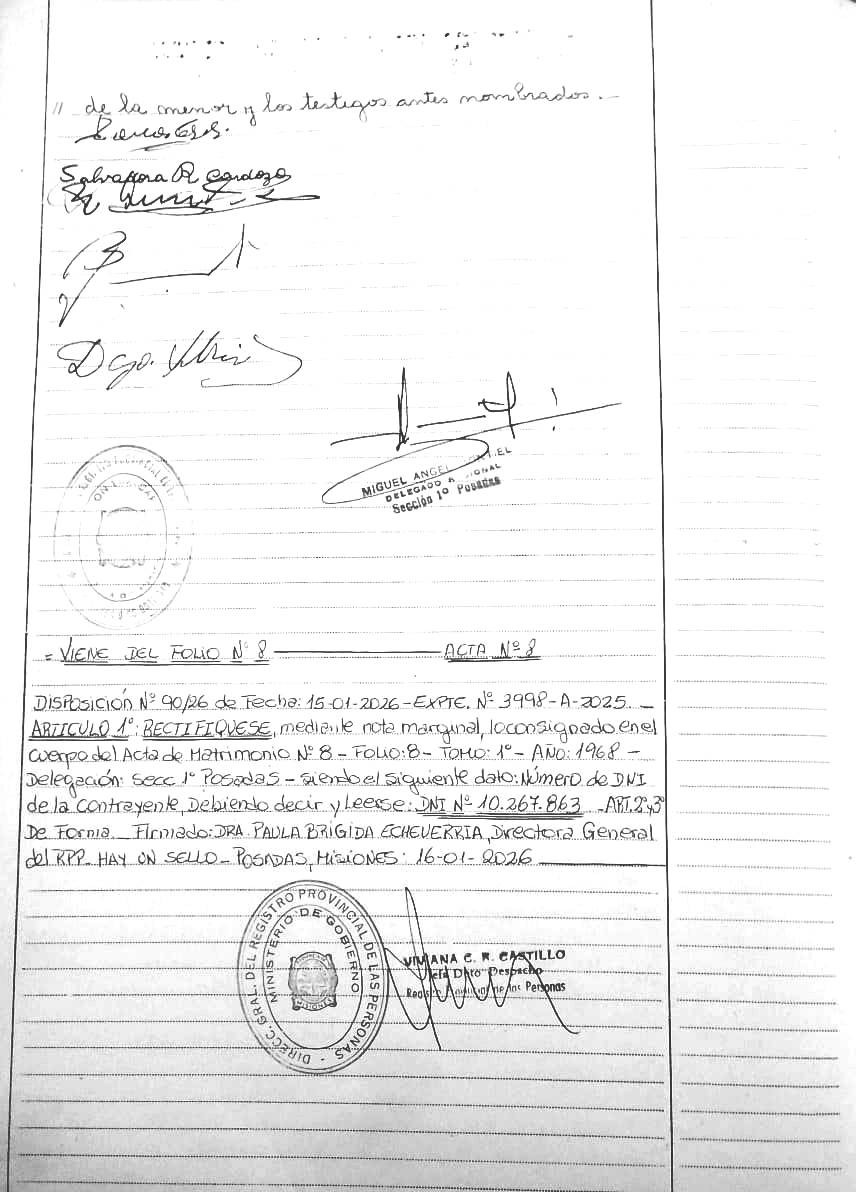 // de la menor y los testigos antes nombrados.-
Salvadora R Cardozo
Dgo.
MIGUEL ANGEL
DELEGADO
Sección 1º Posadas
= VIENE DEL FOLIO Nº 8 ACTA Nº 8
DISPOSICIÓN Nº 90/26 de Fecha: 15-01-2026-EXPTE. Nº 3998-A-2025._
ARTICULO 1º: RECTIFIQUESE, mediente nota marginal, lo consignado en el
cuerpo del Acta de Matrimonio Nº 8 - FOLIO: 8 - TOMO: 1º - AÑO: 1968 -
Delegación: Secc 1º POSADAS - siendo el siguiente dato: Número de DNI
de la contrayente, Debiendo decir y Leerse: DNI Nº 10.267.863 _ART. 2º y 3º
De Forma._ Firmado: DRA. PAULA BRIGIDA ECHEVERRIA, Directora General
del RPP_ HAY UN SELLO_ POSADAS, Misiones: 16-01-2026
DIRECC. GRAL. DEL REGISTRO PROVINCIAL DE LAS PERSONAS -
MINISTERIO DE GOBIERNO
MISIONES
VIVIANA C. R. CASTILLO
Jefa Dpto Despacho
Personas